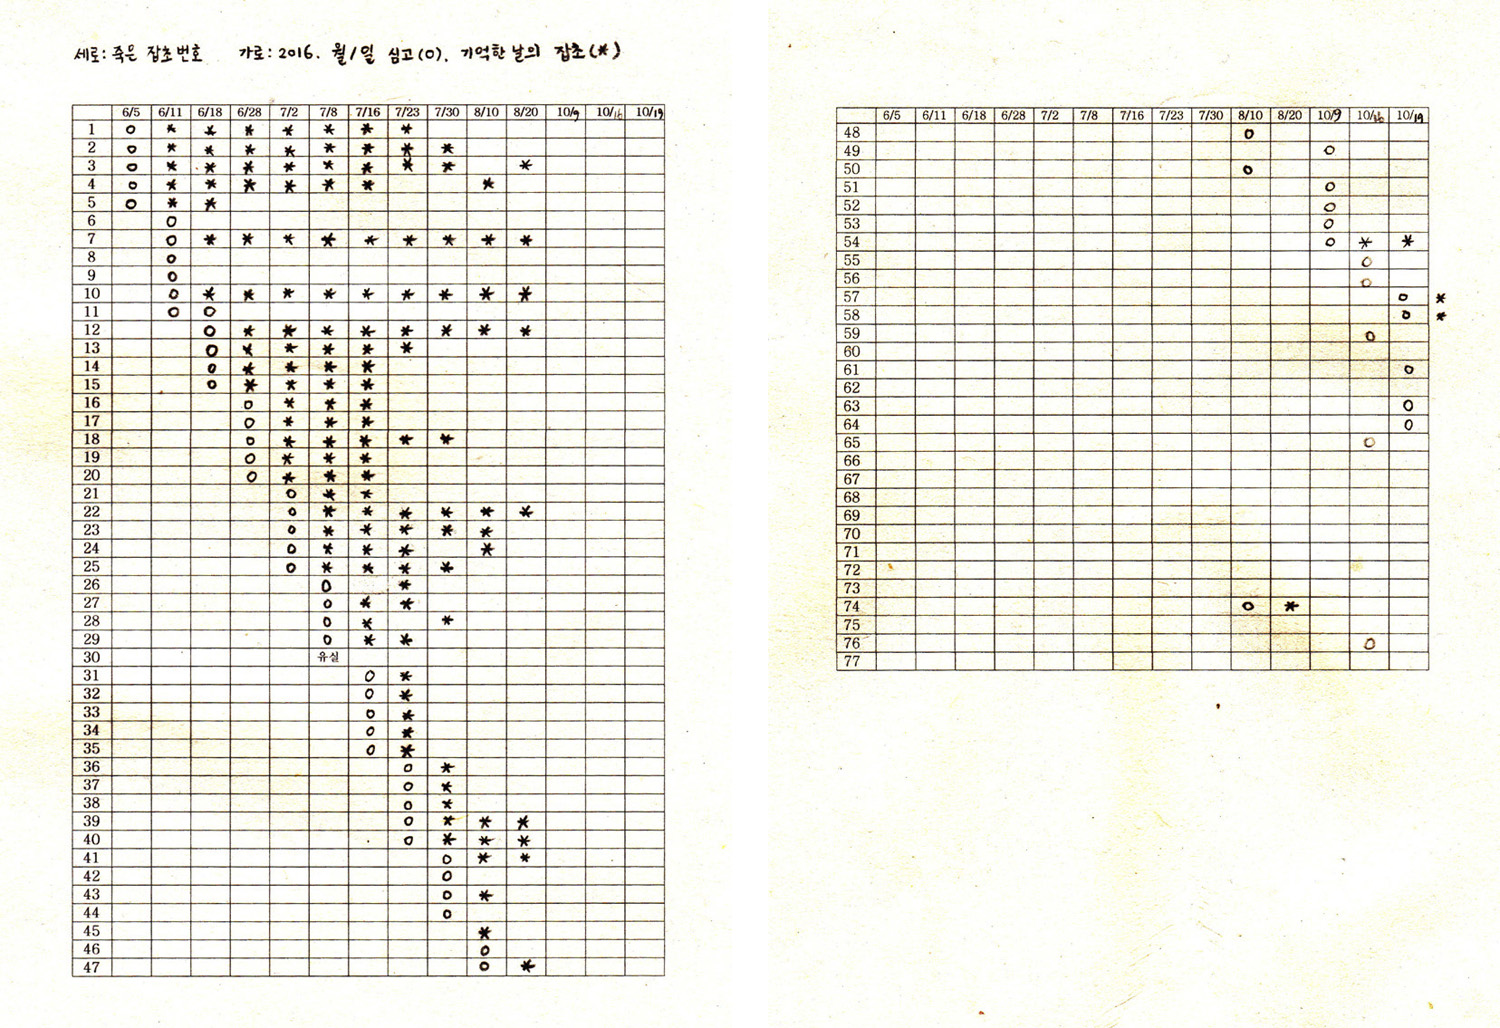 세로: 죽은 잡초번호 가로: 2016. 월/일 심고(O). 기억한 날의 잡초(*)
6/5 6/11 6/18 6/28 7/2 7/8 7/16 7/23 7/30 8/10 8/20 10/9 10/16 10/19
1 O * * * * * * *
2 O * * * * * * * *
3 O * * * * * * * * *
4 O * * * * * * *
5 O * *
6 O
7 O * * * * * * * * *
8 O
9 O
10 O * * * * * * * * *
11 O O
12 O * * * * * * * *
13 O * * * * *
14 O * * * *
15 O * * * *
16 O * * *
17 O * * *
18 O * * * * *
19 O * * *
20 O * * *
21 O * *
22 O * * * * * *
23 O * * * * *
24 O * * * *
25 O * * * *
26 O *
27 O * *
28 O * *
29 O * *
30 유실
31 O *
32 O *
33 O *
34 O *
35 O *
36 O *
37 O *
38 O *
39 O * * *
40 O * * *
41 O * *
42 O
43 O *
44 O
45 *
46 O
47 O *
6/5 6/11 6/18 6/28 7/2 7/8 7/16 7/23 7/30 8/10 8/20 10/9 10/16 10/19
48 O
49 O
50 O
51 O
52 O
53 O
54 O * *
55 O
56 O
57 O *
58 O *
59 O
60
61 O
62
63 O
64 O
65 O
66
67
68
69
70
71
72
73
74 O *
75
76 O
77